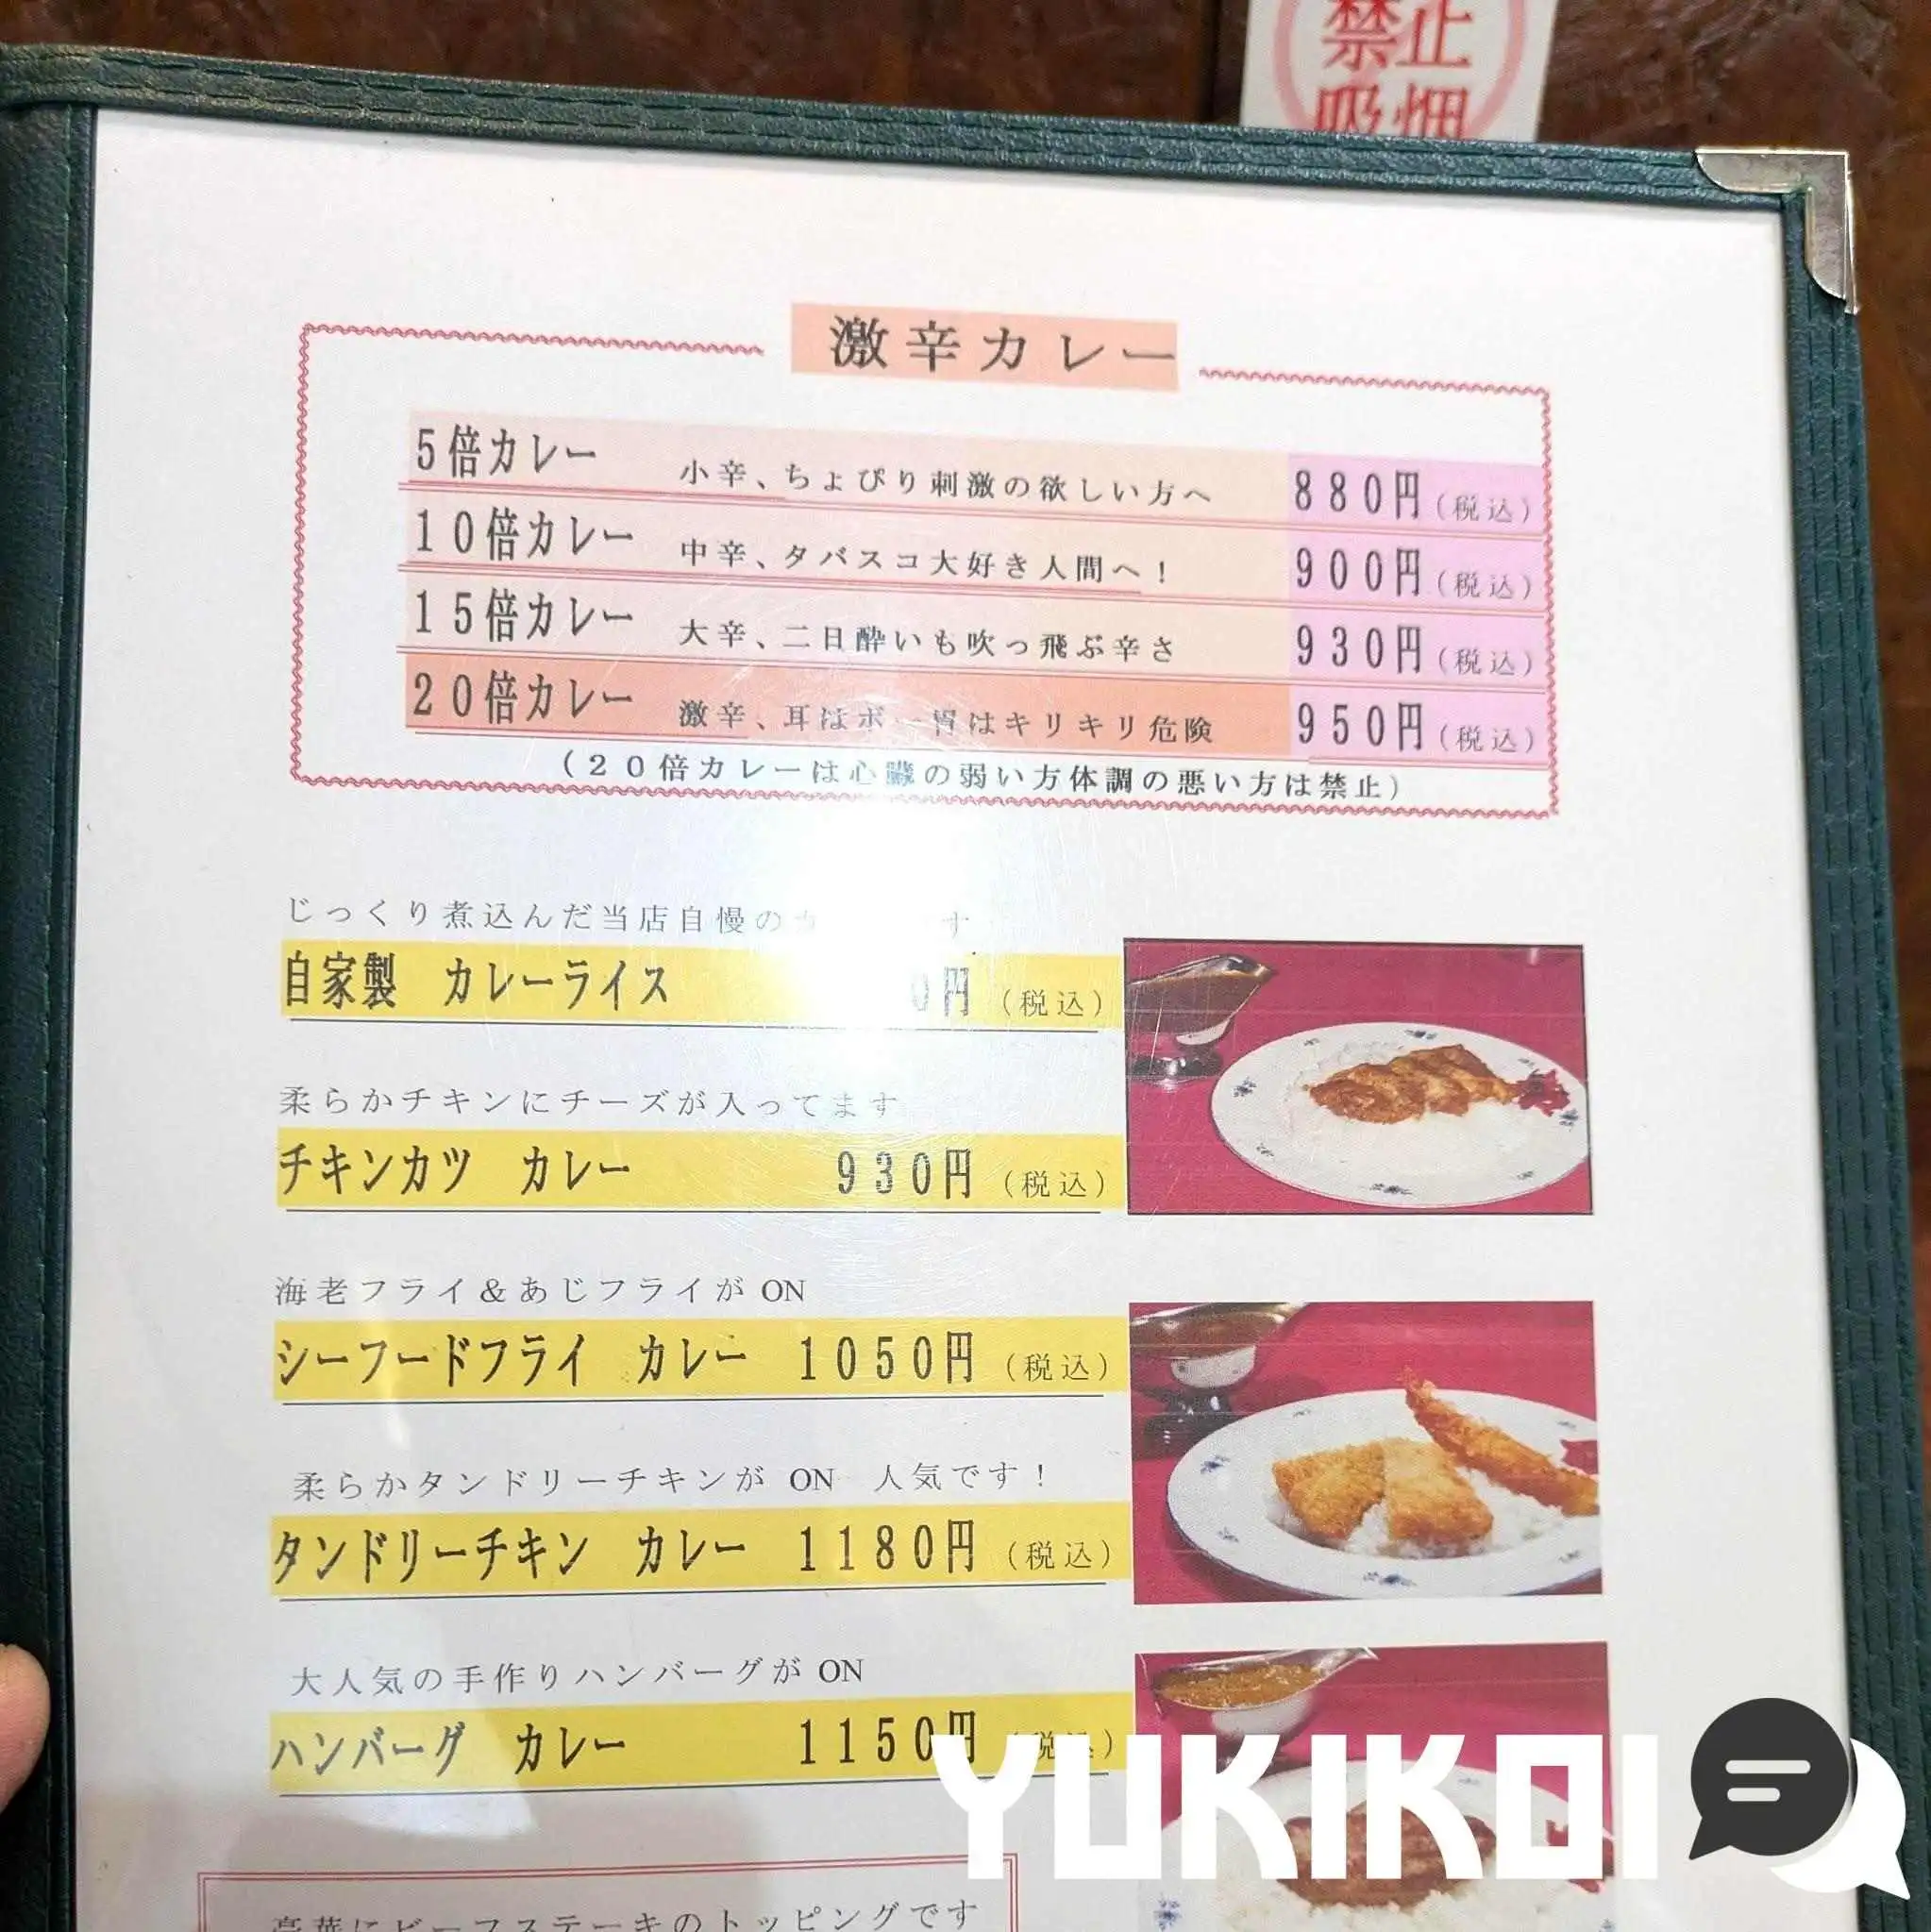 禁止
吸烟
激辛カレー
5倍カレー 小辛、ちょぴり刺激の欲しい方へ 880円(税込)
10倍カレー 中辛、タバスコ大好き人間へ! 900円(税込)
15倍カレー 大辛、二日酔いも吹っ飛ぶ辛さ 930円(税込)
20倍カレー 激辛、耳はボー胃はキリキリ危険 950円(税込)
(20倍カレーは心臓の弱い方体調の悪い方は禁止)
じっくり煮込んだ当店自慢のカ す
自家製 カレーライス 0円(税込)
柔らかチキンにチーズが入ってます
チキンカツ カレー 930円(税込)
海老フライ&あじフライが ON
シーフードフライ カレー 1050円(税込)
柔らかタンドリーチキンが ON 人気です!
タンドリーチキン カレー 1180円(税込)
大人気の手作りハンバーグが ON
ハンバーグ カレー 1150円(税込)
豪華にビーフステーキのトッピングです
YUKIKOI